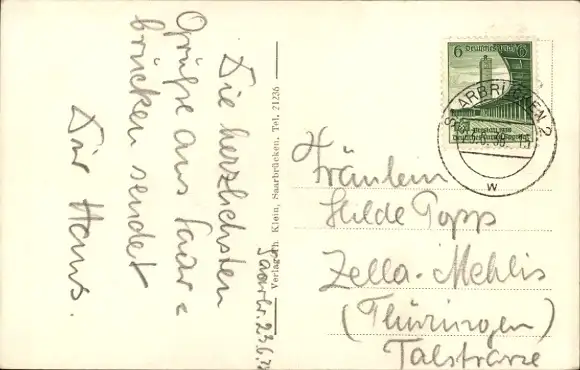 Die herzlichsten
Grüße aus Saar=
brücken sendet
Dir Hans.
Saarbr. 23.6.
Verlag Th. Klein, Saarbrücken, Tel. 21236
6 6
SAARBRÜCKEN 2
w
Fräulein
Hilde Topp
Zella-Mehlis
(Thüringen)
Talstraße